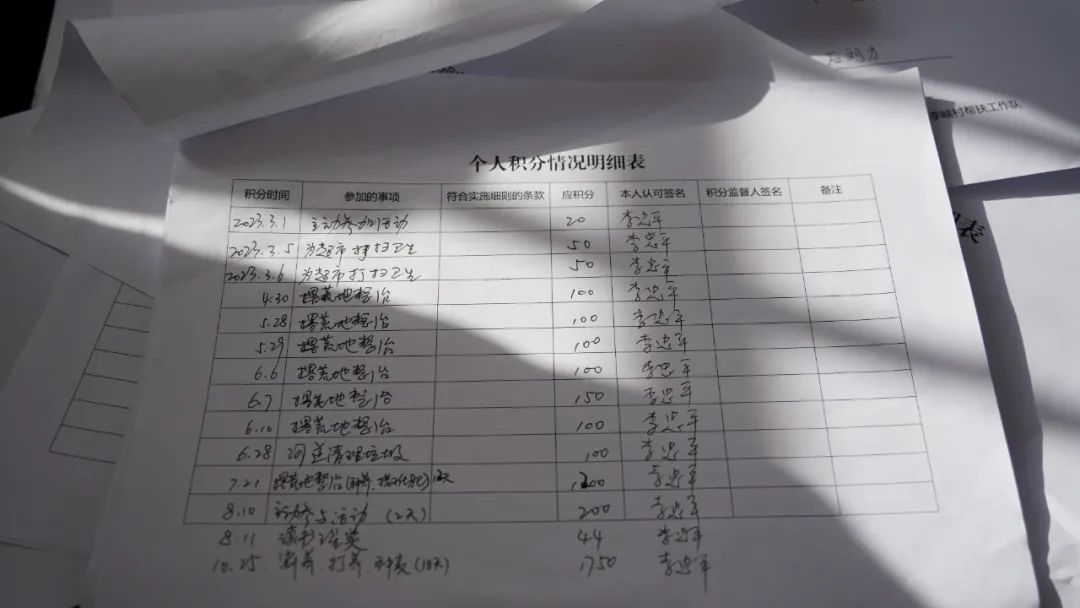 石刘力
村帮扶工作队
个人积分情况明细表
表
积分时间 参加的事项 符合实施细则的条款 应积分 本人认可签名 积分监督人签名 备注
2023.3.1 主动参加活动 20 李忠军
2023.3.5 为超市打扫卫生 50 李忠军
2023.3.6 为超市打扫卫生 50 李忠军
4.30 撂荒地整治 100 李忠军
5.28 撂荒地整治 100 李忠军
5.29 撂荒地整治 100 李忠军
6.6 撂荒地整治 100 李忠军
6.7 撂荒地整治 150 李忠军
6.10 撂荒地整治 100 李忠军
6.28 河道清理垃圾 100 李忠军
7.21 撂荒地整治 12天 1200 李忠军
8.10 主动参与活动 (2天) 200 李忠军
8.11 44 李忠军
10.25. 打荞. (18天) 1750 李忠军